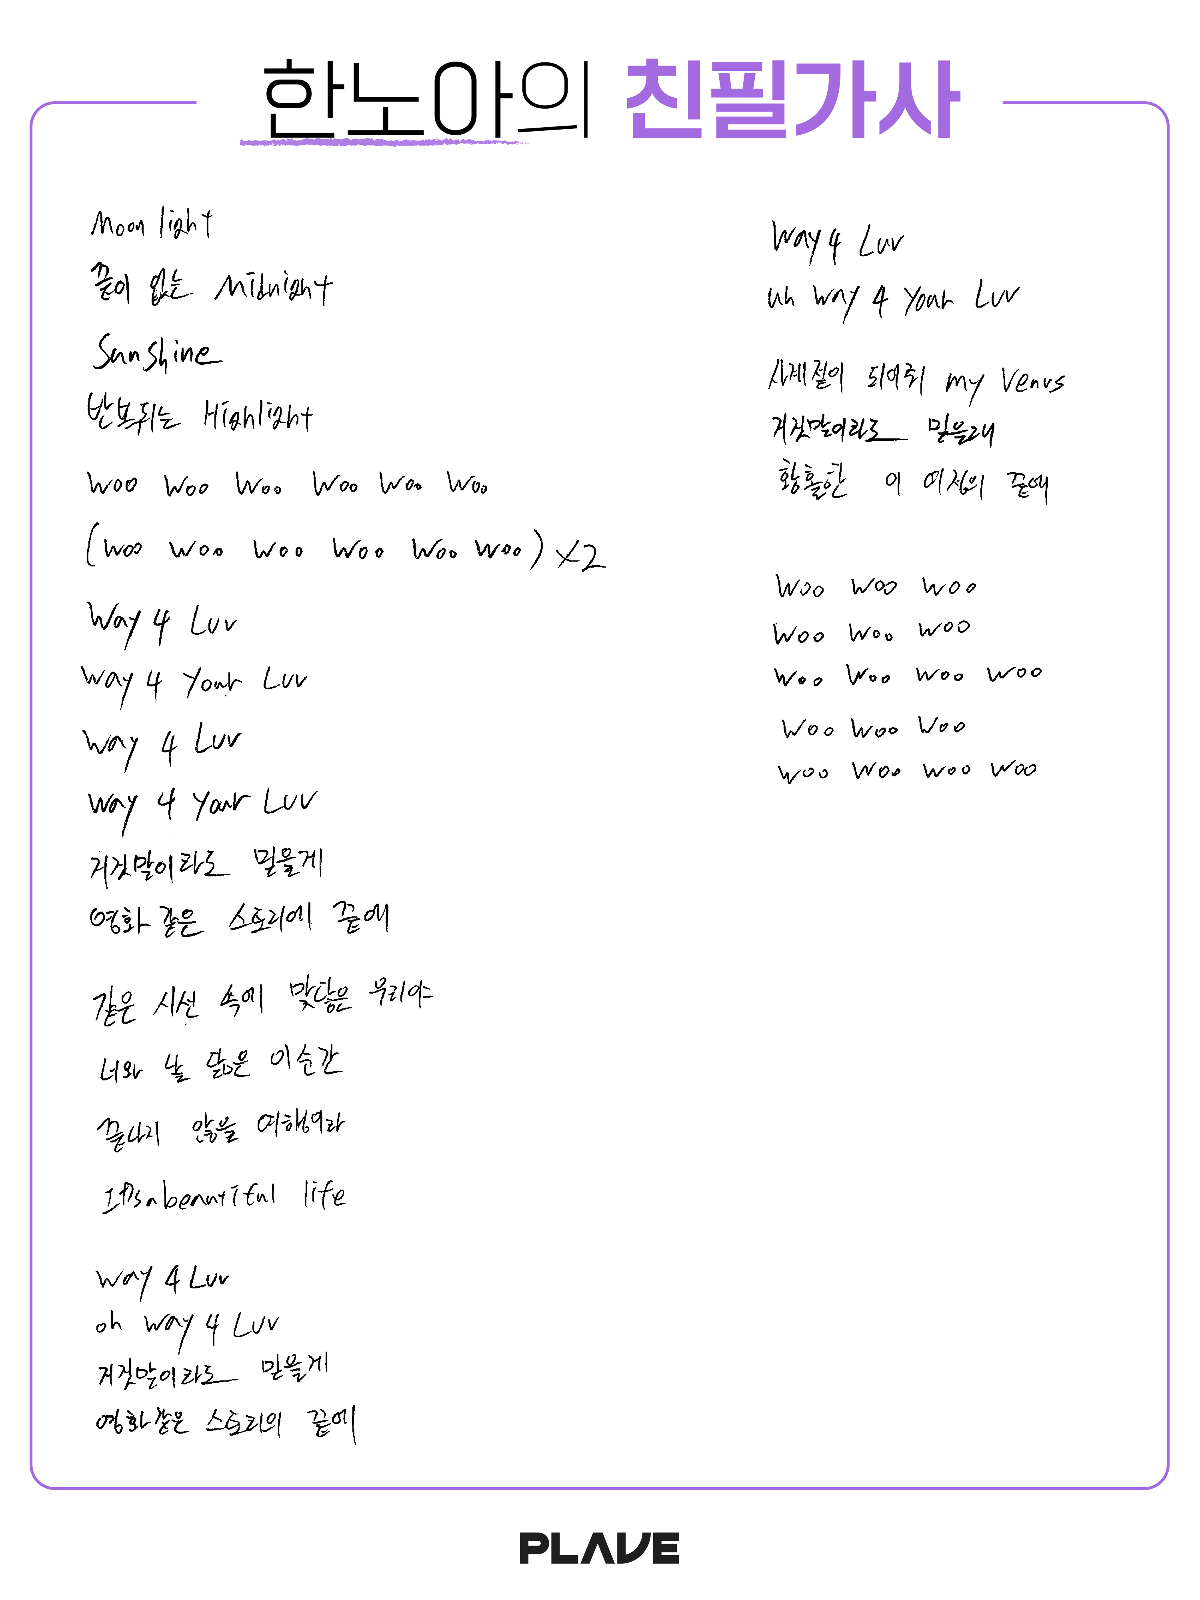 한노아의 친필가사
Moonlight
끝이 없는 Midnight
Sunshine
반복되는 Highlight
woo woo woo woo woo woo
(woo woo woo woo woo woo) x2
Way 4 Luv
Way 4 Your Luv
Way 4 Luv
Way 4 Your Luv
거짓말이라도 믿을게
영화 같은 스토리에 끝에
같은 시선 속에 맞닿은 우리야
너와 날 닮은 이 순간
끝나지 않을 여행이라
It's a beautiful life
Way 4 Luv
oh Way 4 Luv
거짓말이라도 믿을게
영화 같은 스토리의 끝에
Way 4 Luv
uh Way 4 Your Luv
사계절이 되어줘 my Venus
거짓말이라도 믿을래
황홀한 이 여정의 끝에
woo woo woo
woo woo woo
woo woo woo woo
woo woo woo
woo woo woo woo
PLAVE